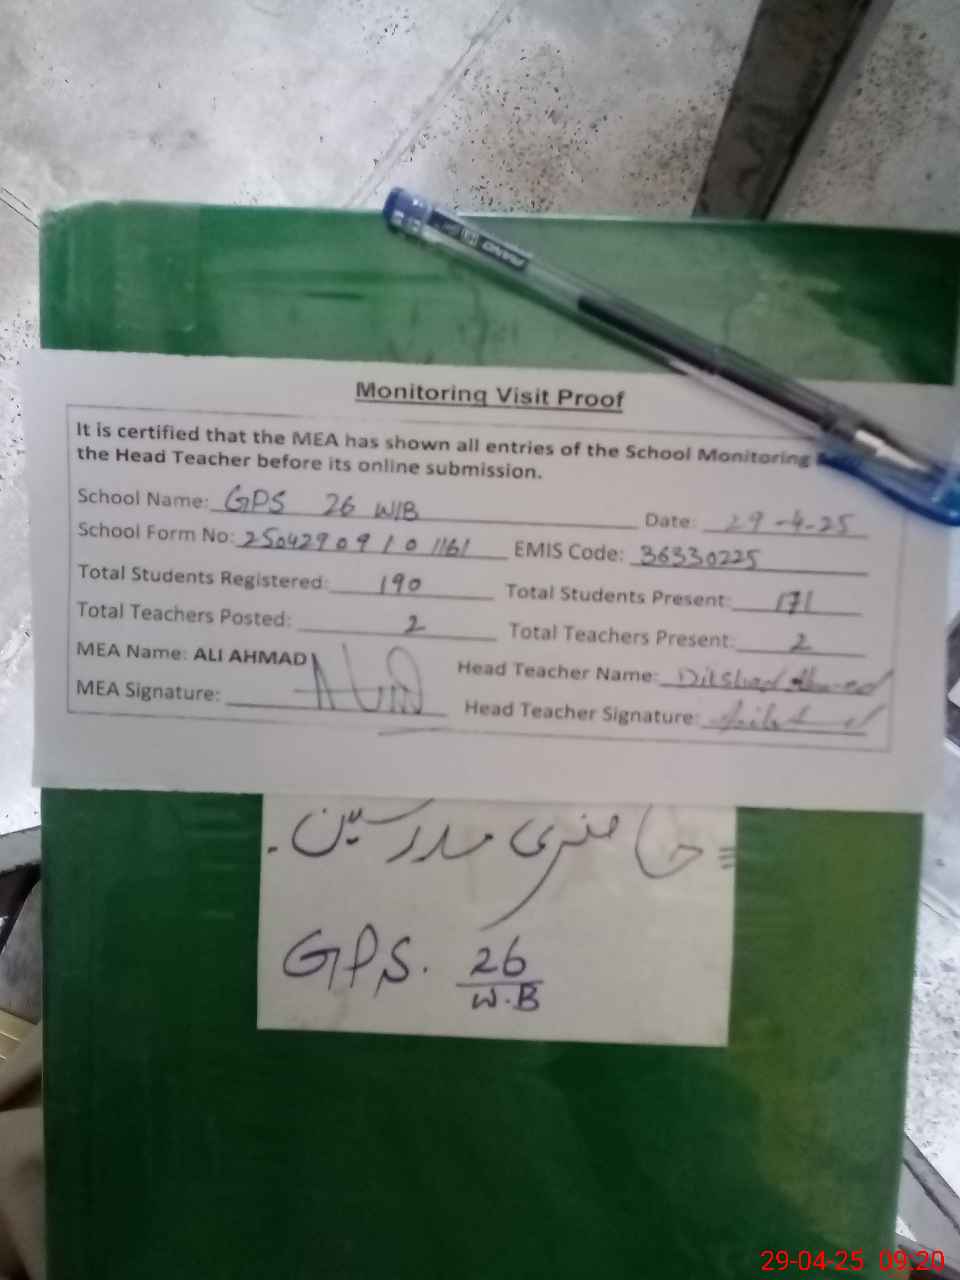 PIANO
Monitoring Visit Proof
It is certified that the MEA has shown all entries of the School Monitoring
the Head Teacher before its online submission.
School Name: GPS 26 W/B Date: 29-4-25
School Form No: 2504290910 1161 EMIS Code: 36330225
Total Students Registered: 190 Total Students Present: 171
Total Teachers Posted: 2 Total Teachers Present: 2
MEA Name: ALI AHMAD Head Teacher Name: Dilshad Ahmed
MEA Signature: Head Teacher Signature:
حاضری مدرسین
GPS. 26
W.B
29-04-25 09:20